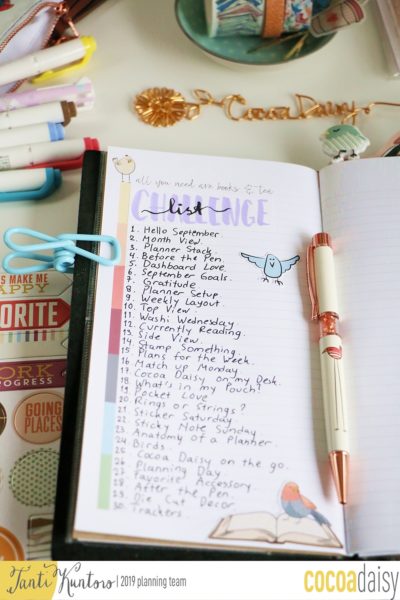 Cocoa Daisy
all you need are books & tea
CHALLENGE
list
1. Hello September.
2. Month View.
3. Planner Stack.
4. Before the Pen.
5. Dashboard Love.
6. September Goals.
7. Gratitude
8. Planner Setup.
9. Weekly Layout.
10. Top View
11. Washi Wednesday
12. Currently Reading.
13. Side View.
14. Stamp Something.
15. Plans for the Week.
16. Match up Monday
17. Cocoa Daisy on my Desk.
18. What's in my Pouch?
19. Pocket Love
20. Rings or Strings?
21. Sticker Saturday
22. Sticky Note Sunday
23. Anatomy of a Planner.
24. Birds.
25. Cocoa Daisy on the go.
26. Planning Day.
27. Favorites Accessory
28. After the Pen.
29. Die Cut Decor
30. Trackers.
MAKE ME
HAPPY
FAVORITE
WORK
PROGRESS
GOING
PLACES
Tanti Kuntoro | 2019 planning team
cocoadaisy